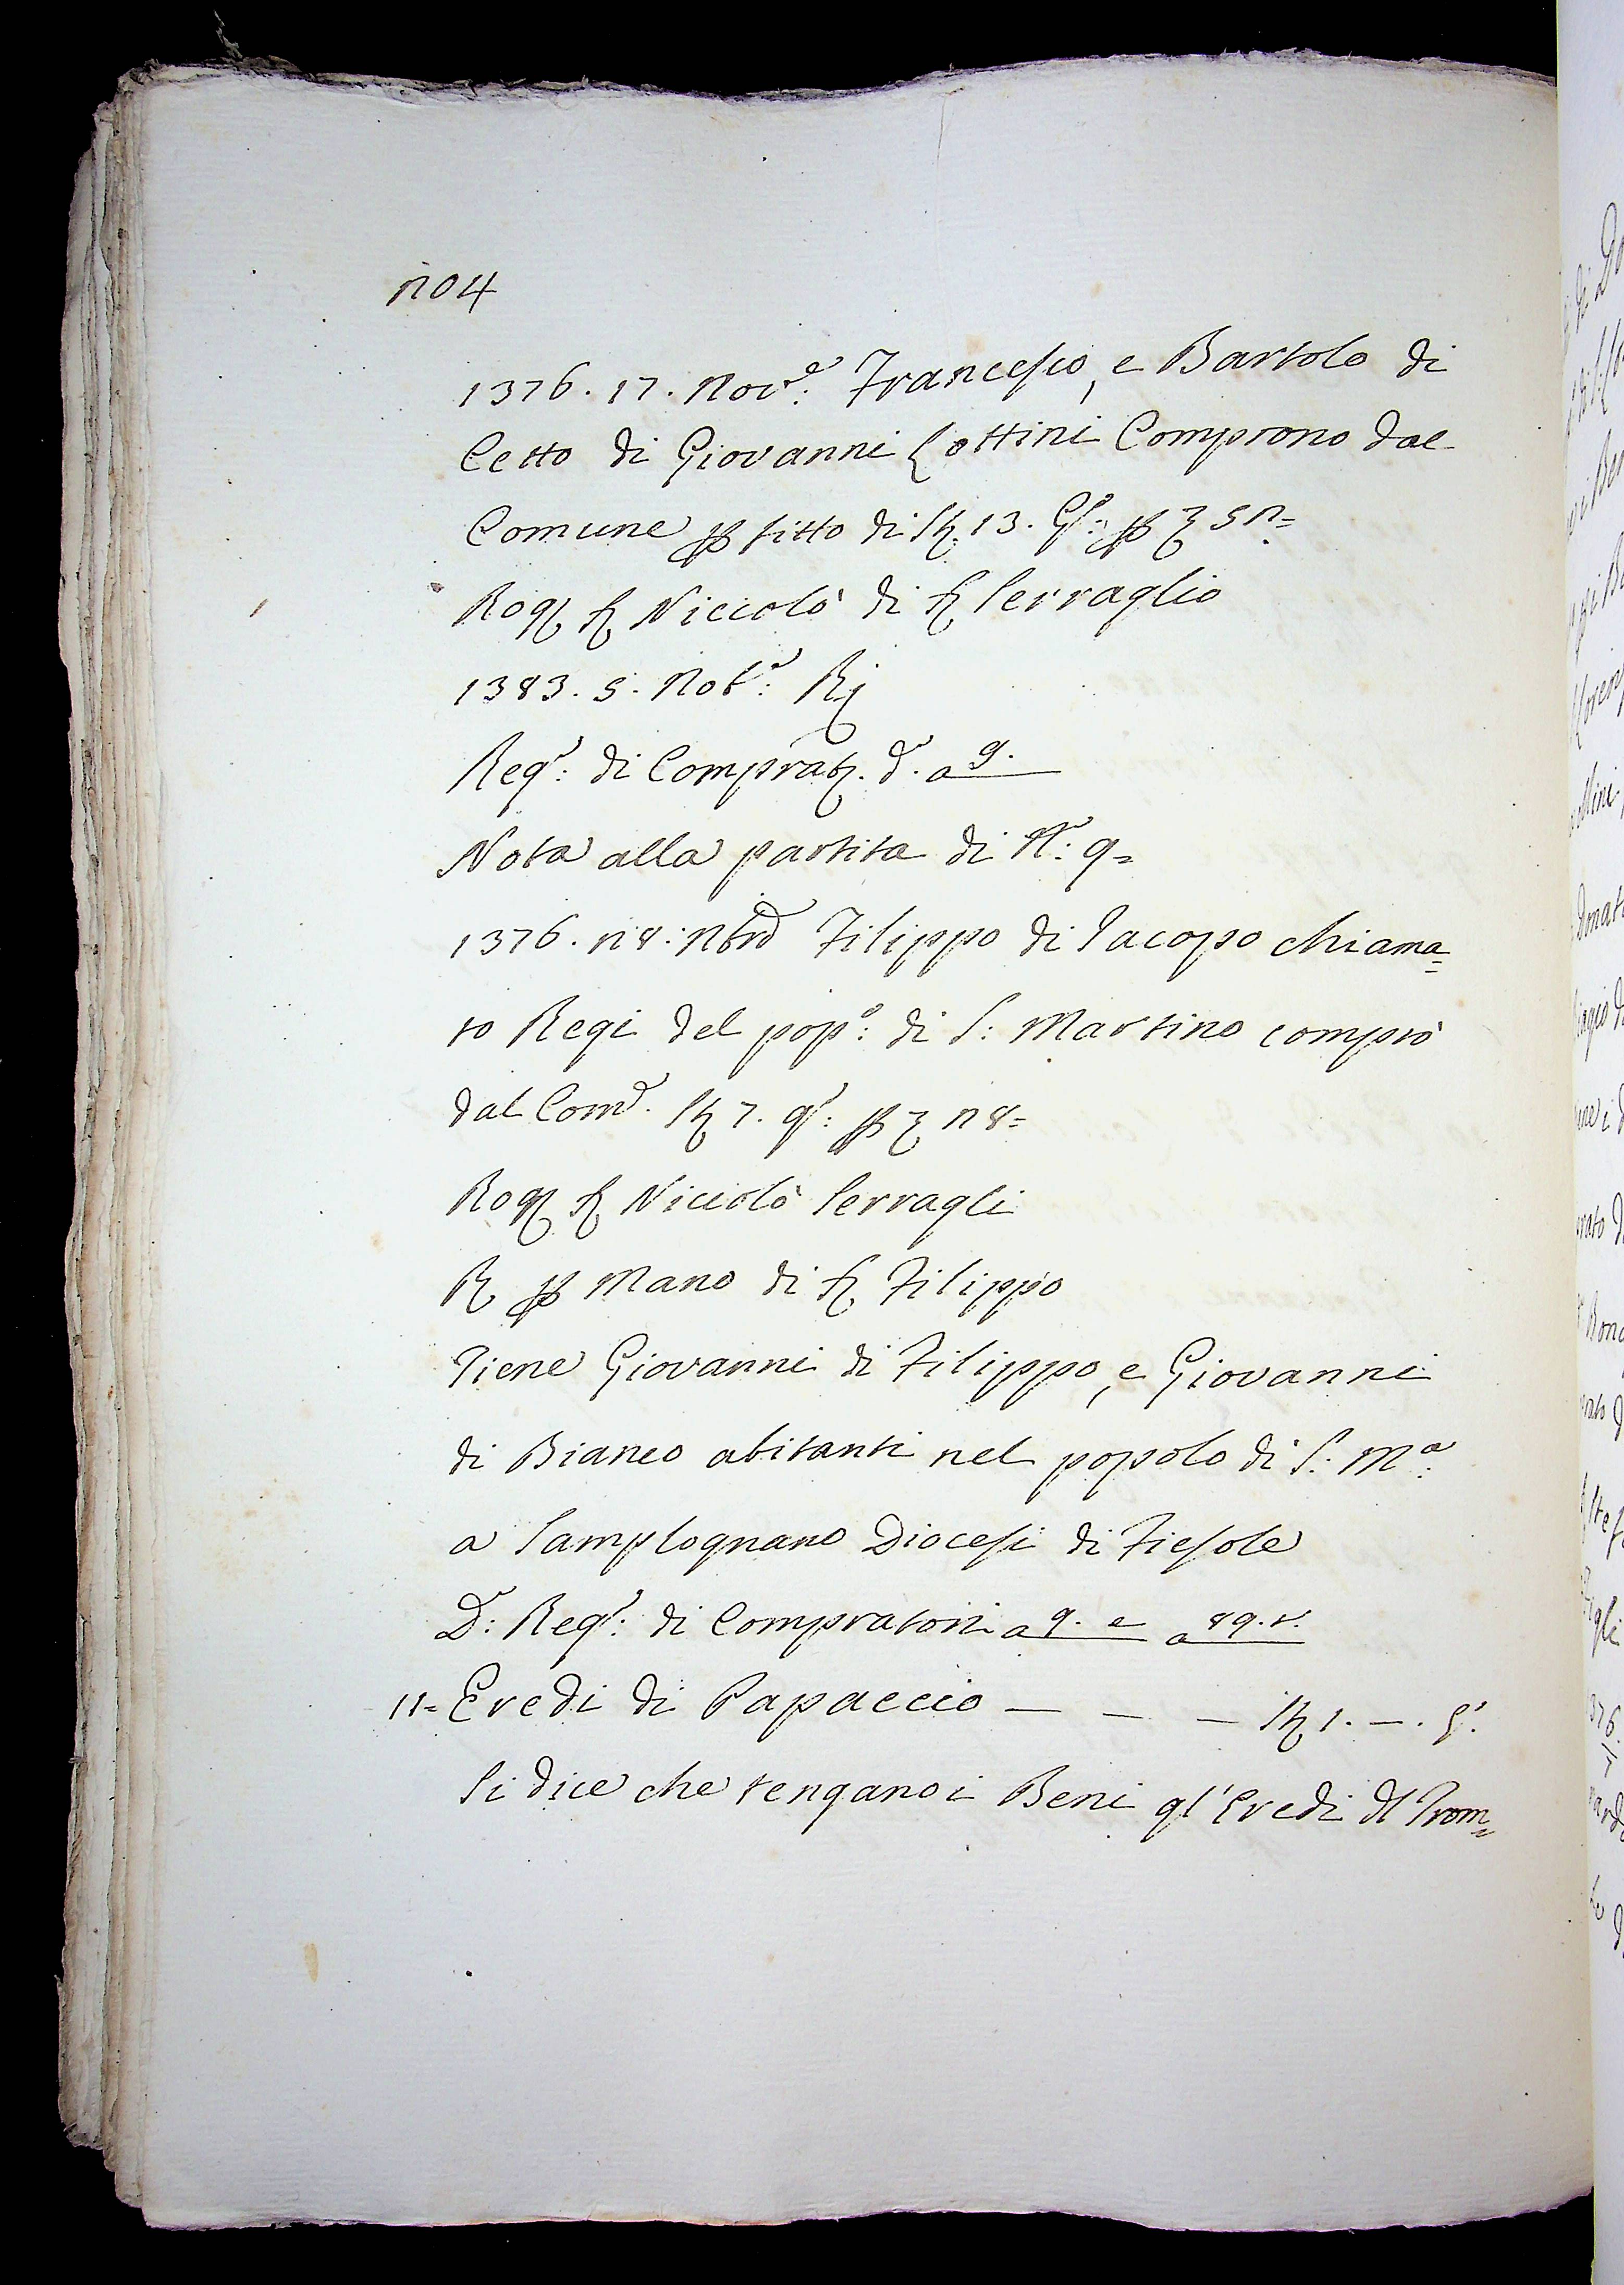 204
1376. 17. Nov.e: Francesco, e Bartolo di
Cetto di Giovanni Lottini Comprono dal
Comune p fitto di St. 13. G.o: p L 52=
Rog. S. Niccolò di S. Serraglio
1383. 5. Nob.e: R
Reg.o: di Comprat. d.o a 9.
Nota alla partita di N.o: 9=
1376. 28: Nbre Filippo di Jacopo chiama=
to Regi del pop.o: di S: Martino comprò
dal Com.e St 7. g.o: p L 28=
Rog. S. Niccolò Serragli
R p Mano di S. Filippo
Tiene Giovanni di Filippo, e Giovanni
di Bianco abitanti nel popolo di S: M.a:
a Samplognano Diocesi di Fiesole
D.o: Reg.o: di Compratori a 9. e a 89. t.
11= Eredi di Papaccio — — — St 1. —. g.o
Si dice che tengano i Beni gl'Eredi di Trom=